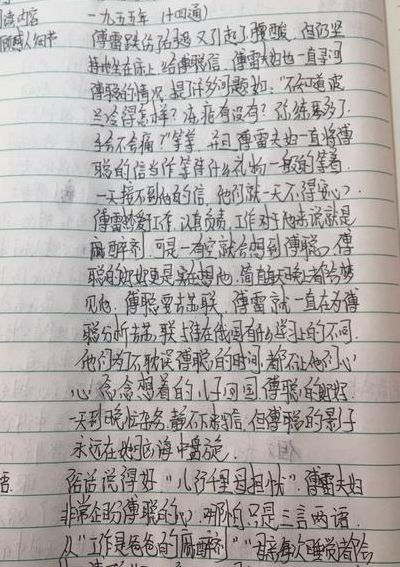 阅读内容 一九五五年 (十四通)
感人细节 傅雷跌伤 又引起了腰酸,但仍坚
持坐在床上给傅聪信,傅雷夫妇也一直寻问
傅聪的情况,提了许多问题如:"不知道波
兰冷得怎样?冻疮有没有?你练琴多了
手会不会痛?"等等,并且傅雷夫妇一直将傅
聪的信当作等待什么礼物一般的等着
一天接不到他的信,他们就一天不得安心。
傅雷 工作,认真负责,工作对于他来说就是
麻醉剂,可是一有空就会想到傅聪。傅
聪的 更是实在想他,简直天天晚上都会梦
见他,傅聪要去苏联,傅雷就一直在为傅
聪分析去苏联与待在我国有什么学习上的不同,
他们为了不耽误傅聪的时间,都不让他们心
心念念想着的儿子回国 傅聪的
一天到晚忙杂务,静不下来写信,但傅聪的影子
永远在她脑海中盘旋。
俗话说得好"儿行千里母担忧"傅雷夫妇
非常 傅聪的 哪怕只是三言两语,
从"工作是爸爸的麻醉剂""妈妈每次睡觉都会